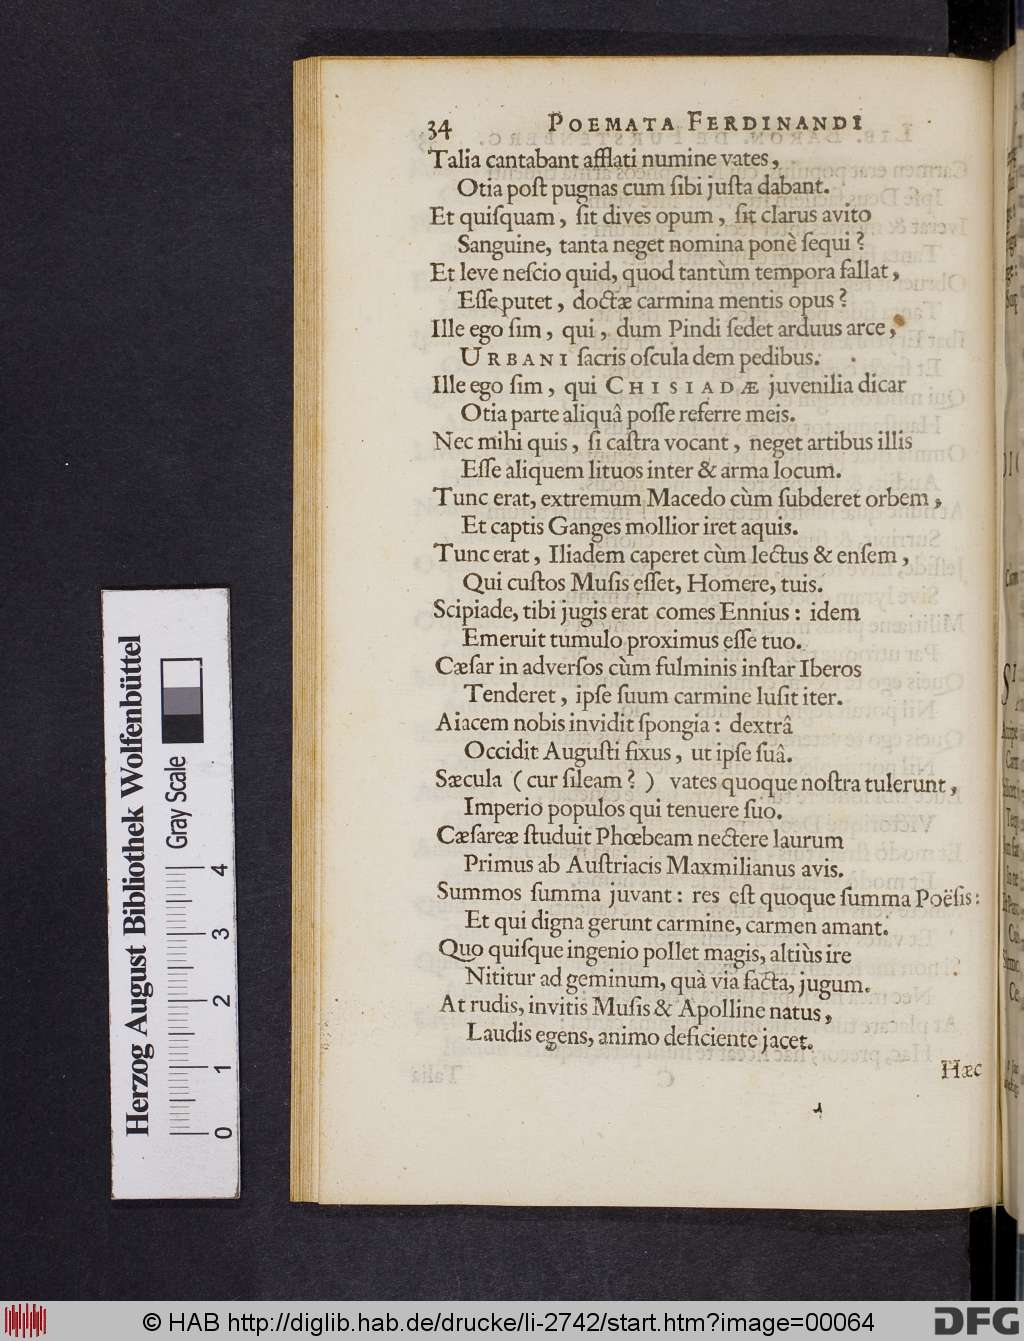 34 POEMATA FERDINANDI
Talia cantabant afflati numine vates,
Otia poſt pugnas cum ſibi juſta dabant.
Et quiſquam, ſit dives opum, ſit clarus avito
Sanguine, tanta neget nomina ponè ſequi?
Et leve neſcio quid, quod tantùm tempora fallat,
Eſſe putet, doctæ carmina mentis opus?
Ille ego ſim, qui, dum Pindi ſedet arduus arce,
URBANI ſacris oſcula dem pedibus.
Ille ego ſim, qui CHISIADÆ juvenilia dicar
Otia parte aliquâ poſſe referre meis.
Nec mihi quis, ſi caſtra vocant, neget artibus illis
Eſſe aliquem lituos inter & arma locum.
Tunc erat, extremum Macedo cùm ſubderet orbem,
Et captis Ganges mollior iret aquis.
Tunc erat, Iliadem caperet cùm lectus & enſem,
Qui cuſtos Muſis eſſet, Homere, tuis.
Scipiade, tibi jugis erat comes Ennius: idem
Emeruit tumulo proximus eſſe tuo.
Cæſar in adverſos cùm fulminis inſtar Iberos
Tenderet, ipſe ſuum carmine luſit iter.
Aiacem nobis invidit ſpongia: dextrâ
Occidit Auguſti fixus, ut ipſe ſuâ.
Sæcula (cur ſileam?) vates quoque noſtra tulerunt,
Imperio populos qui tenuere ſuo.
Cæſareæ ſtuduit Phœbeam nectere laurum
Primus ab Auſtriacis Maxmilianus avis.
Summos ſumma juvant: res eſt quoque ſumma Poëſis:
Et qui digna gerunt carmine, carmen amant.
Quo quiſque ingenio pollet magis, altiùs ire
Nititur ad geminum, quà via facta, jugum.
At rudis, invitis Muſis & Apolline natus,
Laudis egens, animo deficiente jacet.
Hæc
Herzog August Bibliothek Wolfenbüttel
Gray Scale
0 1 2 3 4
© HAB http://diglib.hab.de/drucke/li-2742/start.htm?image=00064
DFG